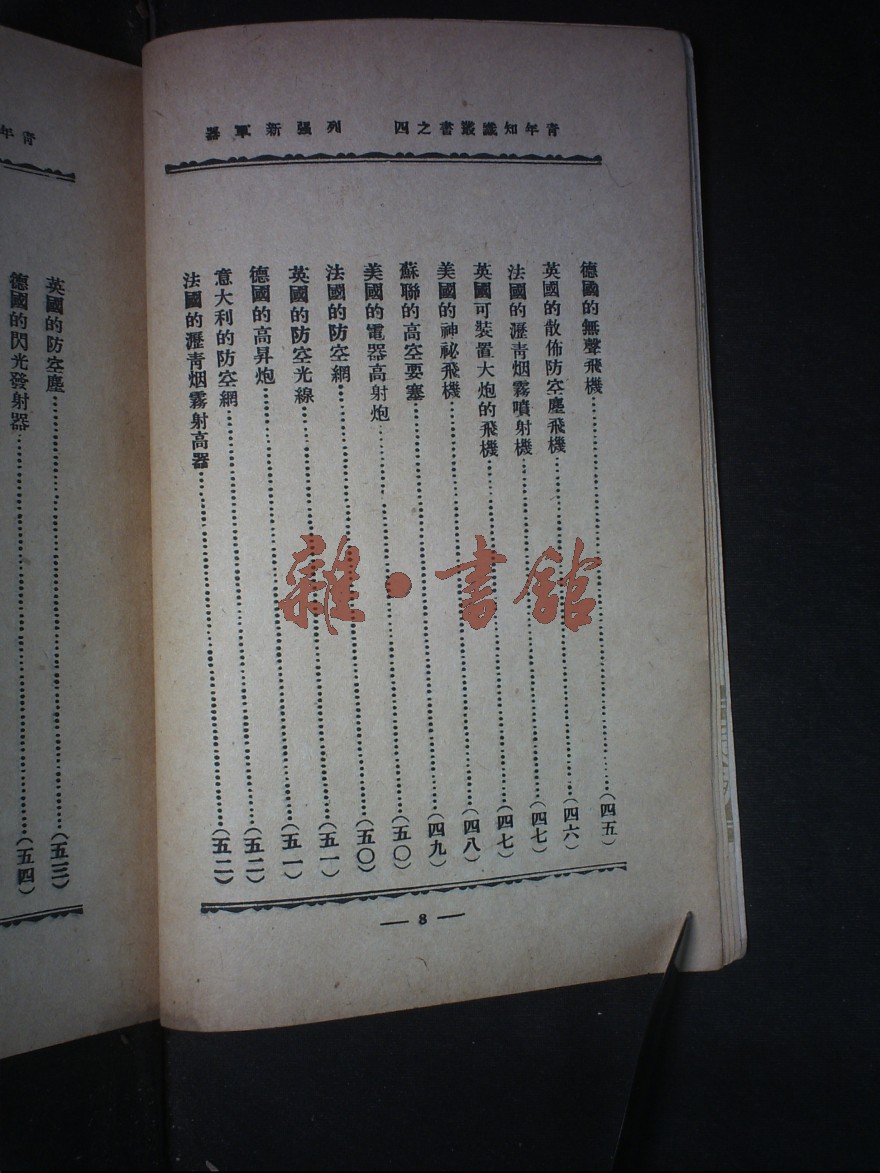 靑年知識叢書之四 列强新軍器
德國的無聲飛機……(四五)
英國的散佈防空塵飛機……(四六)
法國的瀝靑烟霧噴射機……(四七)
英國可裝置大炮的飛機……(四七)
美國的神祕飛機……(四八)
蘇聯的高空要塞……(四九)
美國的電器高射炮……(五〇)
法國的防空網……(五〇)
英國的防空光線……(五一)
德國的高昇炮……(五一)
意大利的防空網……(五二)
法國的瀝靑烟霧射高器……(五二)
— 8 —
靑年
英國的防空塵……(五三)
德國的閃光發射器……(五四)
雜·書館